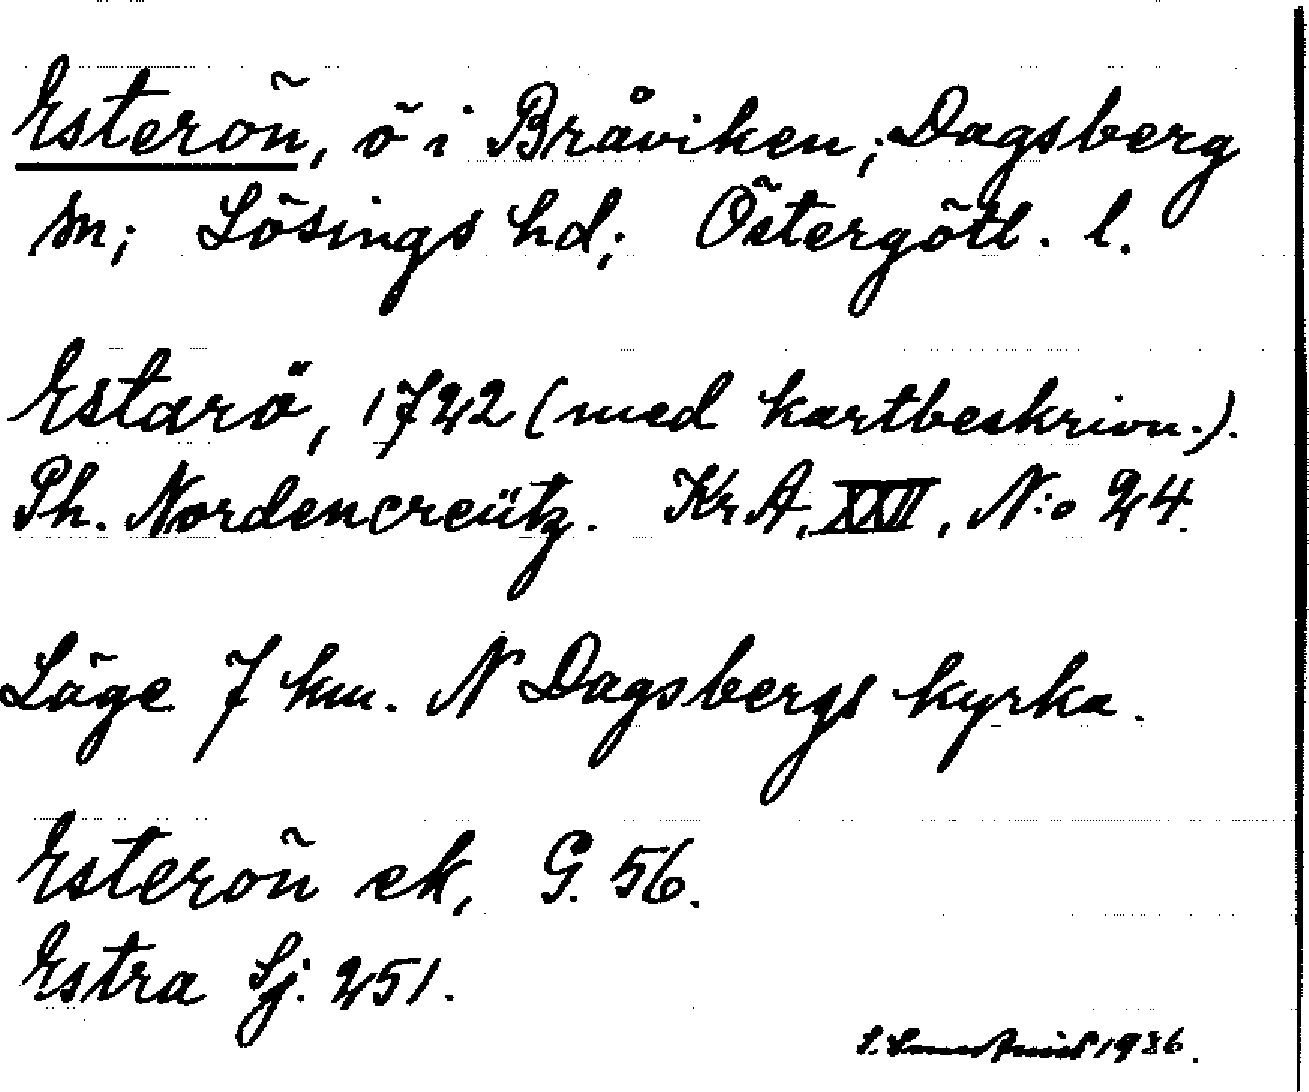 Esterön, ö i Bråviken; Dagsberg
sn; Lösings hd; Östergötl. l.
Estarö, 1722 (med kartbeskrivn.).
Ph. Nordencreütz. Kr A, XXII, N:o 24.
Läge 7 km. N Dagsbergs kyrka.
Esterön ek, G. 56.
Estra Sj. 251.
1936.